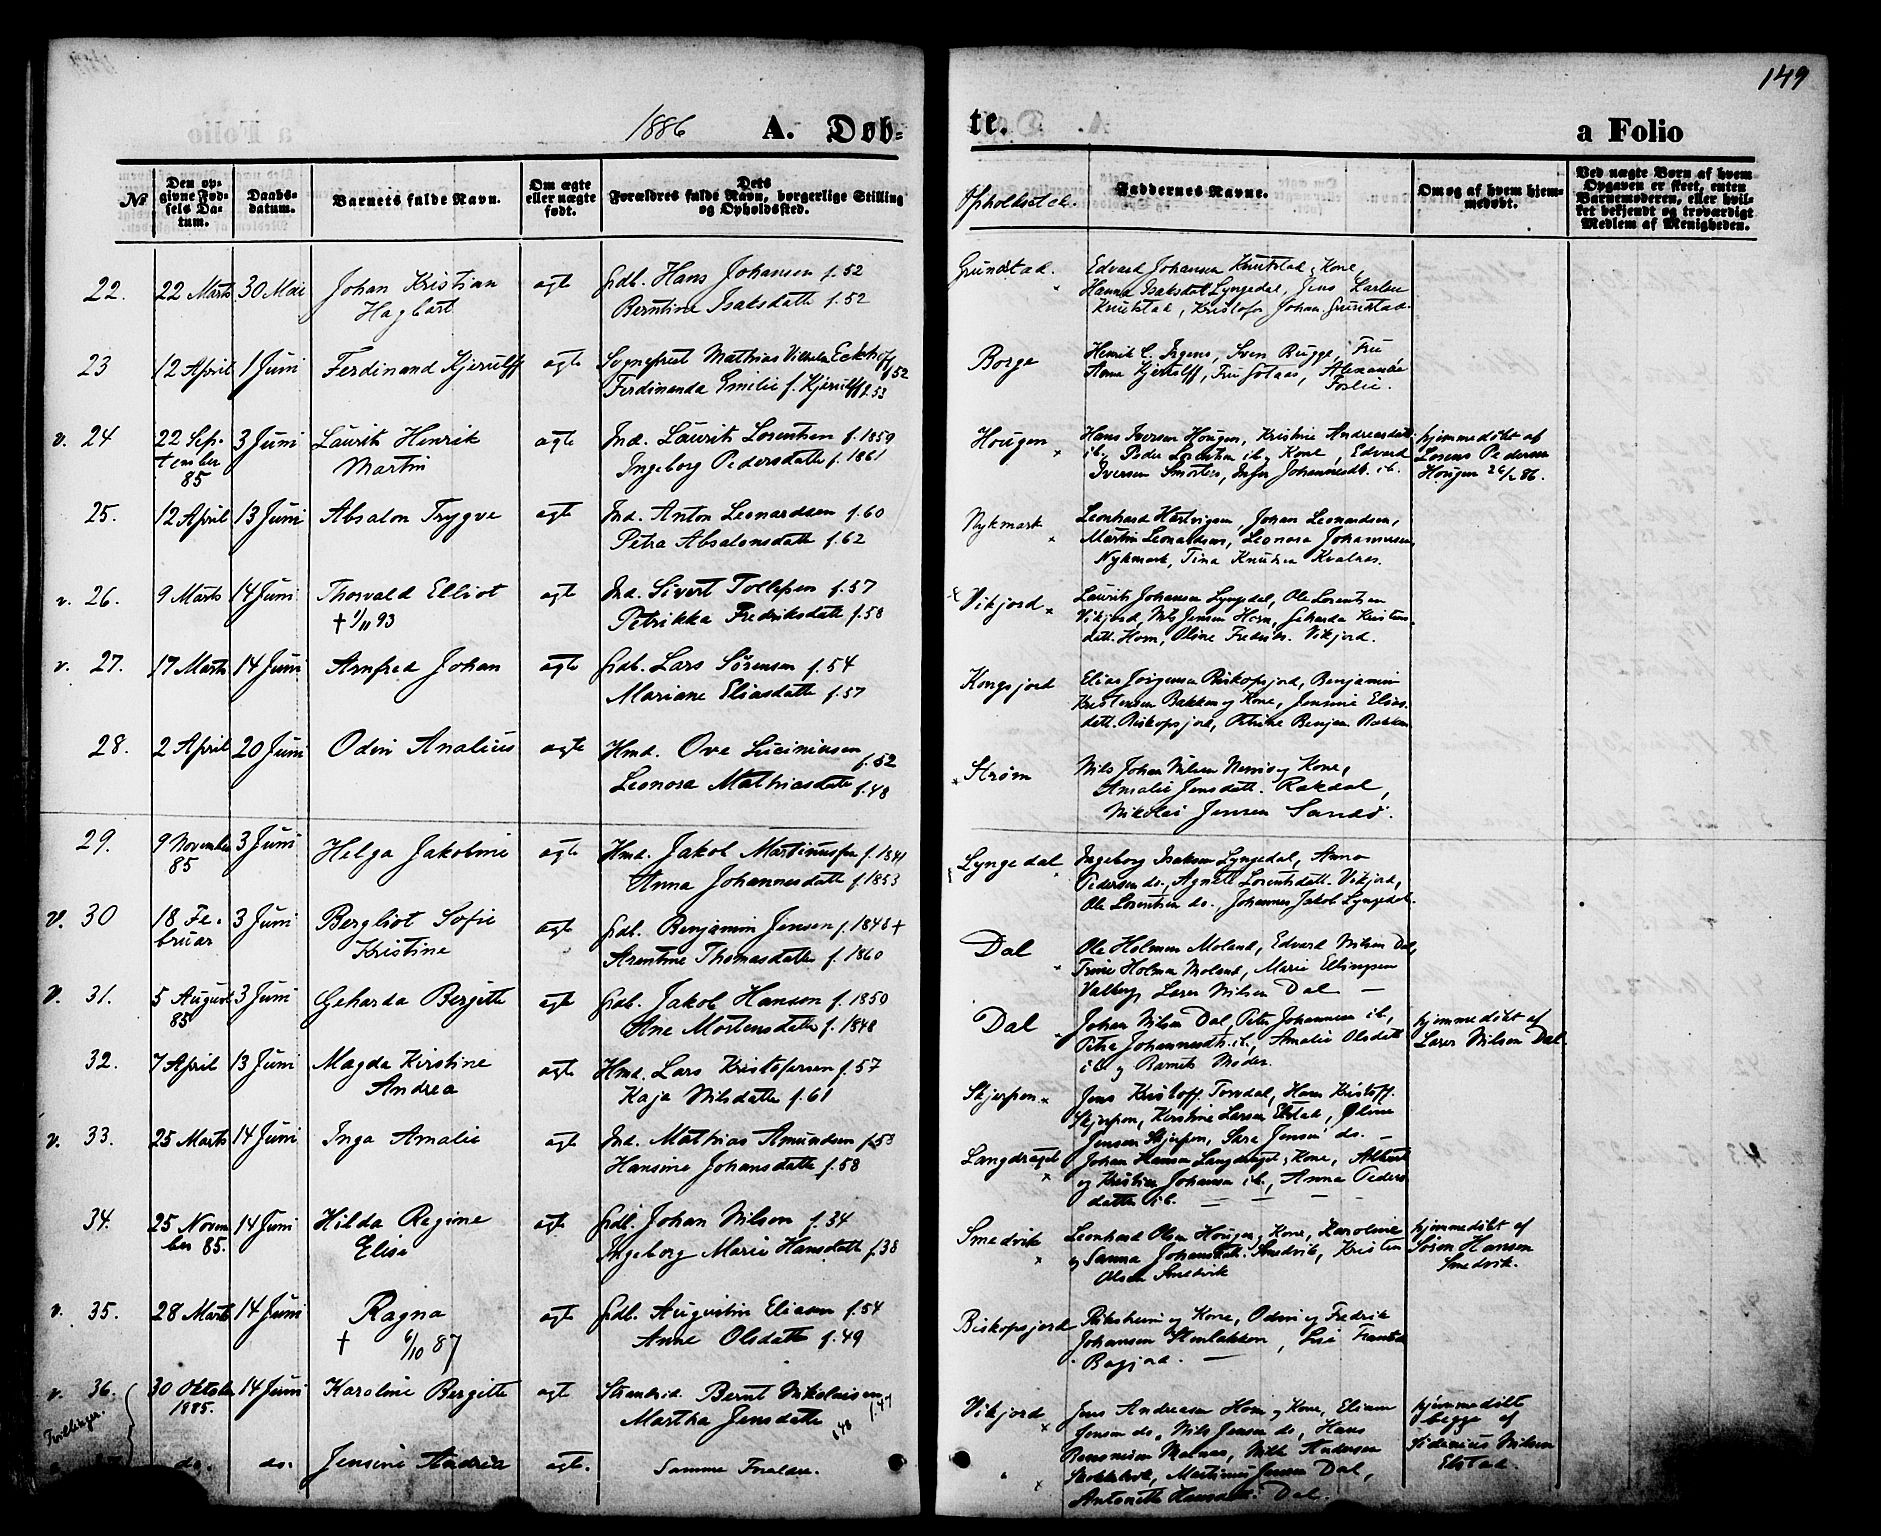 149
1886 A. Døb-
te.
a Folio
№
Den op-
givne Fød-
sels Da-
tum.
Daabs-
datum.
Barnets fulde Navn.
Om ægte
eller uægte
født.
Dets
Forældres fulde Navn, borgerlige Stilling
og Opholdssted.
Opholdsted.
Faddernes Navne.
Om og af hvem hjem-
medøbt.
Ved uægte Børn af hvem
Opgaven er skeet, enten
Barnemoderen, eller hvil-
ket bekjendt og troværdigt
Medlem af Menigheden.
22. 22 Marts 30 Mai Johan Kristian
Hagbart
ægte Gdb. Hans Johansen f. 52
Berntine Isaksdatt f. 52
Grundstad.
Edvard Johansen Knutstad & Kone,
Hanna Isaksdat Lyngedal, Jens Larsen
Knutstad, Kristofer Johan. Grundstad.
23 12 April 1 Juni Ferdinand Kjerulff
ægte Sogneprest Mathias Vilhelm Eckhoff f. 52
Ferdinanda Emilie f. Kjerulff f. 53
Borge
Henrik C. Irgens, Sven Bugge, Fru
Anna Kjerulff, Fru Gotaas, Alexander
24 22 Sep-
tember
85
3 Juni Laurits Henrik
Martin
ægte Ind. Laurits Lorentsen f. 1859
Ingeborg Pedersdatte f. 1861
Hougen
Hans Iversen Hougen, Kristine Andreasdatt.
ib., Peder Lorentsen ib. & Kone, Edvard
Iversen Smorten, Inger Johannesdt. ib.
hjemmedöbt af
Lorens Pedersen
Hougen 26/2 86.
25. 12 April 13 Juni Absalon Trygve
ægte Ind. Anton Leonardsen f. 60
Petra Absalonsdatte f. 62
Nykmark
Leonhard Hartvigsen, Johan Leonardsen,
Martin Leonardsen, Leonora Johannesen
Nykmark, Tina Knutsen Kvalnes.
v. 26. 9 Marts 14 Juni Thorvald Elliot
† 1/11 93
ægte Ind. Sivert Tollefsen f. 57
Petrikka Fredriksdatte f. 58
Vikjord
Laurits Johansen Lyngedal, Ole Lorentsen
Vikjord, Nils Jensen Horn, Geharda Kristens-
datt. Horn, Oline Fredriks. Vikjord.
v. 27. 17 Marts 14 Juni Arnfred Johan
ægte Gdb. Lars Sørensen f. 54
Mariane Eliasdatte f. 57
Kongsjord
Elias Jörgensen Biskopsjord, Benjamin
Kristensen Bakken og Kone, Jensine Elias-
datt. Biskopsjord, Petrikke Benjam Bakken
28. 2 April 20 Juni Odin Analius
ægte Hmd. Ove Luciniusen f. 52
Leonora Mathiasdatte f. 48
Strøm
Nils Johan Nilsen og Kone,
Amalie Jensdatt. Rakdal,
Nikolai Jensen Sandö.
29. 9 November
85
3 Juni Helga Jakobine
ægte Hmd. Jakob Martinussen f. 1841
Anna Johannesdatte f. 1853
Lyngedal
Ingeborg Isaksen Lyngedal, Anna
Pedersen do., Agnete Lorentsdatt. Vikjord,
Ole Lorentsen do., Johannes Jakob. Lyngedal.
V. 30 18 Fe-
bruar
3 Juni Bergliot Sofie
Kristine
ægte Gdb. Benjamin Jensen f. 1848 †
Arentine Thomasdatte f. 1860
Dal
Ole Holmen Moland, Edvard Nilsen Dal,
Trine Holmen Moland, Marie Ellingsen
Valberg, Lars Nilsen Dal —
V. 31. 5 August
85
3 Juni Geharda Bergitte
ægte Gdb. Jakob Hansen f. 1850
Ane Mortensdatte f. 1848
Dal
Johan Nilsen Dal, Peter Johannesen ib.,
Petra Johannesdt. ib., Amalie Olsdatt
ib. og Barnets Moder.
hjemmedöbt af
Lars Nilsen Dal
32. 7 April 13 Juni Magda Kirstine
Andrea
ægte Hmd. Lars Kristofersen f. 57
Kaja Nilsdatte f. 61
Skjerpen
Jens Kristoff. Torvdal, Hans Kristoff.
Skjerpen, Kirstine Larsen Ekstad, Oline
Jensen Skjerpen, Sara Jensen do. —
V. 33. 25 Marts 14 Juni Inga Amalie
ægte Ind. Mathias Amundsen f. 53
Hansine Johansdatte f. 58
Langdraget
Johan Hansen Langdraget & Kone, Albert
og Kristine Johansen ib., Anna Peders-
datte ib.
34. 25 Novem
ber 85.
14 Juni Hilda Regine
Elise
ægte Gdb. Johan Nilsen f. 34
Ingeborg Marie Hansdatte f. 38
Smedvik
Leonhard Olsen Hougen & Kone, Karoline
og Sanna Johansdatt. Smedvik, Kristen
Olsen Smedvik
hjemmedöbt af
Sören Hansen
Smedvik.
v. 35. 28 Marts 14 Juni Ragna
† 6/10 87
ægte Gdb. Augustin Eliasen f. 54
Anne Olsdatte f. 49
Biskopsjord
og Kone, Odin og Fredrik
Johansen
v. 36. 30 Oktober
1885.
14 Juni Karoline Bergitte
ægte Strandsid. Bernt Nikolaisen f. 47
Martha Jensdatte f. 48
Vikjord
Jens Andreasen Horn og Kone, Eliesen
Jensen do., Nils Jensen do., Hans
hjemmedöbt
begge af
Sidenius Nilsen
Ekstad.
Tvillinger.
do. do. Jensine Andrea ægte. Samme Forældre.
Martinus Jensen Dal,
Antonette Hansdatt. Dal.